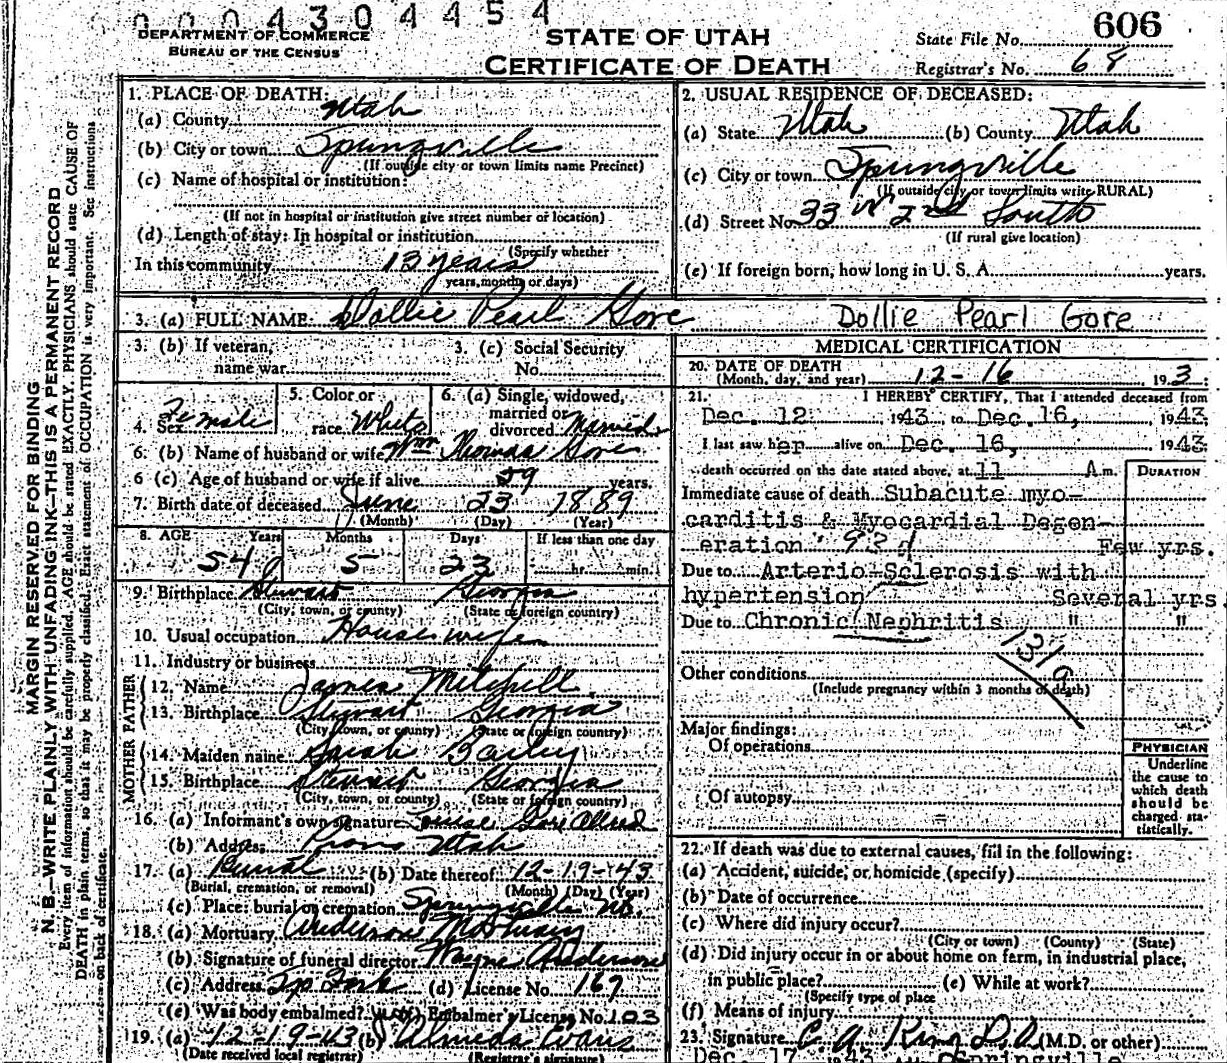 0004304454
DEPARTMENT OF COMMERCE
BUREAU OF THE CENSUS
STATE OF UTAH
CERTIFICATE OF DEATH
State File No. 606
Registrar's No. 68
MARGIN RESERVED FOR BINDING
N. B.—WRITE PLAINLY WITH UNFADING INK—THIS IS A PERMANENT RECORD
Every item of information should be carefully supplied. AGE should be stated EXACTLY. PHYSICIANS should state CAUSE OF
DEATH in plain terms, so that it may be properly classified. Exact statement of OCCUPATION is very important. See instructions
on back of certificate.
1. PLACE OF DEATH:
(a) County Utah
(b) City or town Springville
(If outside city or town limits name Precinct)
(c) Name of hospital or institution:
(If not in hospital or institution give street number or location)
(d) Length of stay: In hospital or institution
(Specify whether
In this community 13 years
years, months or days)
2. USUAL RESIDENCE OF DECEASED:
(a) State Utah (b) County Utah
(c) City or town Springville
(If outside city or town limits write RURAL)
(d) Street No. 33 W 2nd South
(If rural give location)
(e) If foreign born, how long in U. S. A. years.
3. (a) FULL NAME: Dollie Pearl Gore Dollie Pearl Gore
3. (b) If veteran,
name war
3. (c) Social Security
No.
4. Sex Female
5. Color or
race White
6. (a) Single, widowed,
married or
divorced Married
6. (b) Name of husband or wife Wm Thomas Gore
6 (c) Age of husband or wife if alive 59 years.
7. Birth date of deceased June 23 1889
(Month) (Day) (Year)
8. AGE Years Months Days If less than one day
54 5 23 hr. min.
9. Birthplace Stewart Georgia
(City, town, or county) (State or foreign country)
10. Usual occupation Housewife
11. Industry or business
FATHER
12. Name James Mitchell
13. Birthplace Stewart Georgia
(City, town, or county) (State or foreign country)
MOTHER
14. Maiden name Sarah Bailey
15. Birthplace Stewart Georgia
(City, town, or county) (State or foreign country)
16. (a) Informant's own signature Louise Gore Allred
(b) Address Provo Utah
17. (a) Burial (b) Date thereof 12-19-43
(Burial, cremation, or removal) (Month) (Day) (Year)
(c) Place: burial or cremation Springville Ut.
18. (a) Mortuary Anderson Mortuary
(b) Signature of funeral director Wayne Anderson
(c) Address Sp Fork (d) License No. 169
(e) Was body embalmed? Embalmer's License No. 103
19. (a) 12-19-43 (b) Almeda Evans
(Date received local registrar) (Registrar's signature)
MEDICAL CERTIFICATION
20. DATE OF DEATH
(Month, day, and year) 12-16 1943
21. I HEREBY CERTIFY, That I attended deceased from
Dec. 12 1943, to Dec. 16, 1943
I last saw her alive on Dec. 16, 1943
death occurred on the date stated above, at 11 A m.
DURATION
Immediate cause of death Subacute myo-
carditis & Myocardial Degen-
eration 93d Few yrs.
Due to Arterio-Sclerosis with
hypertension Several yrs
Due to Chronic Nephritis " "
131a
Other conditions
(Include pregnancy within 3 months of death)
Major findings:
Of operations
Of autopsy
PHYSICIAN
Underline
the cause to
which death
should be
charged sta-
tistically.
22. If death was due to external causes, fill in the following:
(a) Accident, suicide, or homicide (specify)
(b) Date of occurrence
(c) Where did injury occur?
(City or town) (County) (State)
(d) Did injury occur in or about home on farm, in industrial place,
in public place? (e) While at work?
(Specify type of place
(f) Means of injury
23. Signature C. A. King D.O. (M.D. or other)
Dec. 17 43 Springville